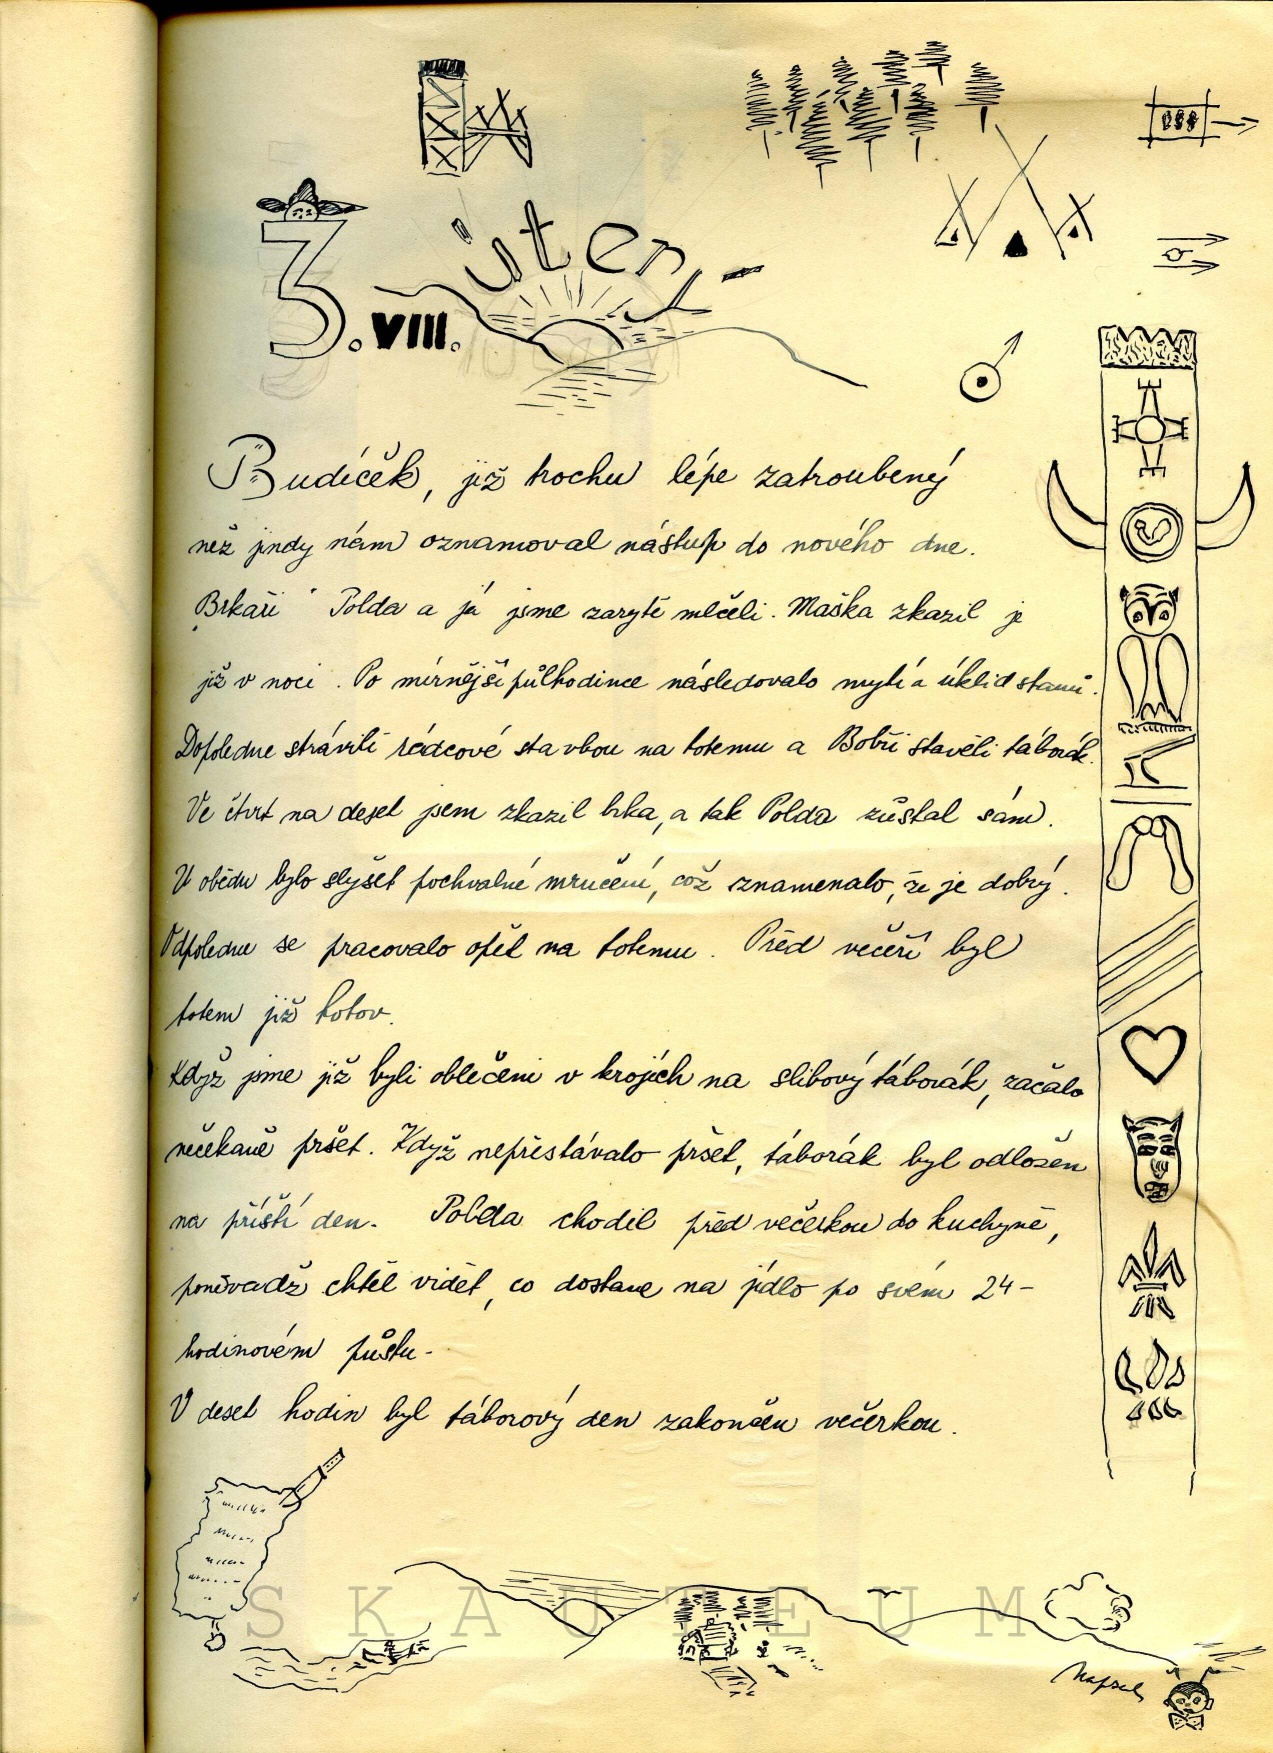 úterý
3. VIII.
Budíček, již trochu lépe zatroubený
než jindy nám oznamoval nástup do nového dne.
Brkaři Polda a já jsme zarytě mlčeli. Maška zkazil je
již v noci. Po mírnější půlhodince následovalo mytí a úklid stanů.
Dopoledne strávili rádcové stavbou na totemu a Bobři stavěli táborák.
Ve čtvrt na deset jsem zkazil brka, a tak Polda zůstal sám.
U obědu bylo slyšet pochvalné mručení, což znamenalo, že je dobrý.
Odpoledne se pracovalo opět na totemu. Před večeří byl
totem již hotov.
Když jsme již byli oblečeni v krojích na slibový táborák, začalo
nečekaně pršet. Když nepřestávalo pršet, táborák byl odložen
na příští den. Polda chodil před večerkou do kuchyně,
poněvadž chtěl vidět, co dostane na jídlo po svém 24-
hodinovém půstu.
V deset hodin byl táborový den zakončen večerkou.
SKAUTEUM